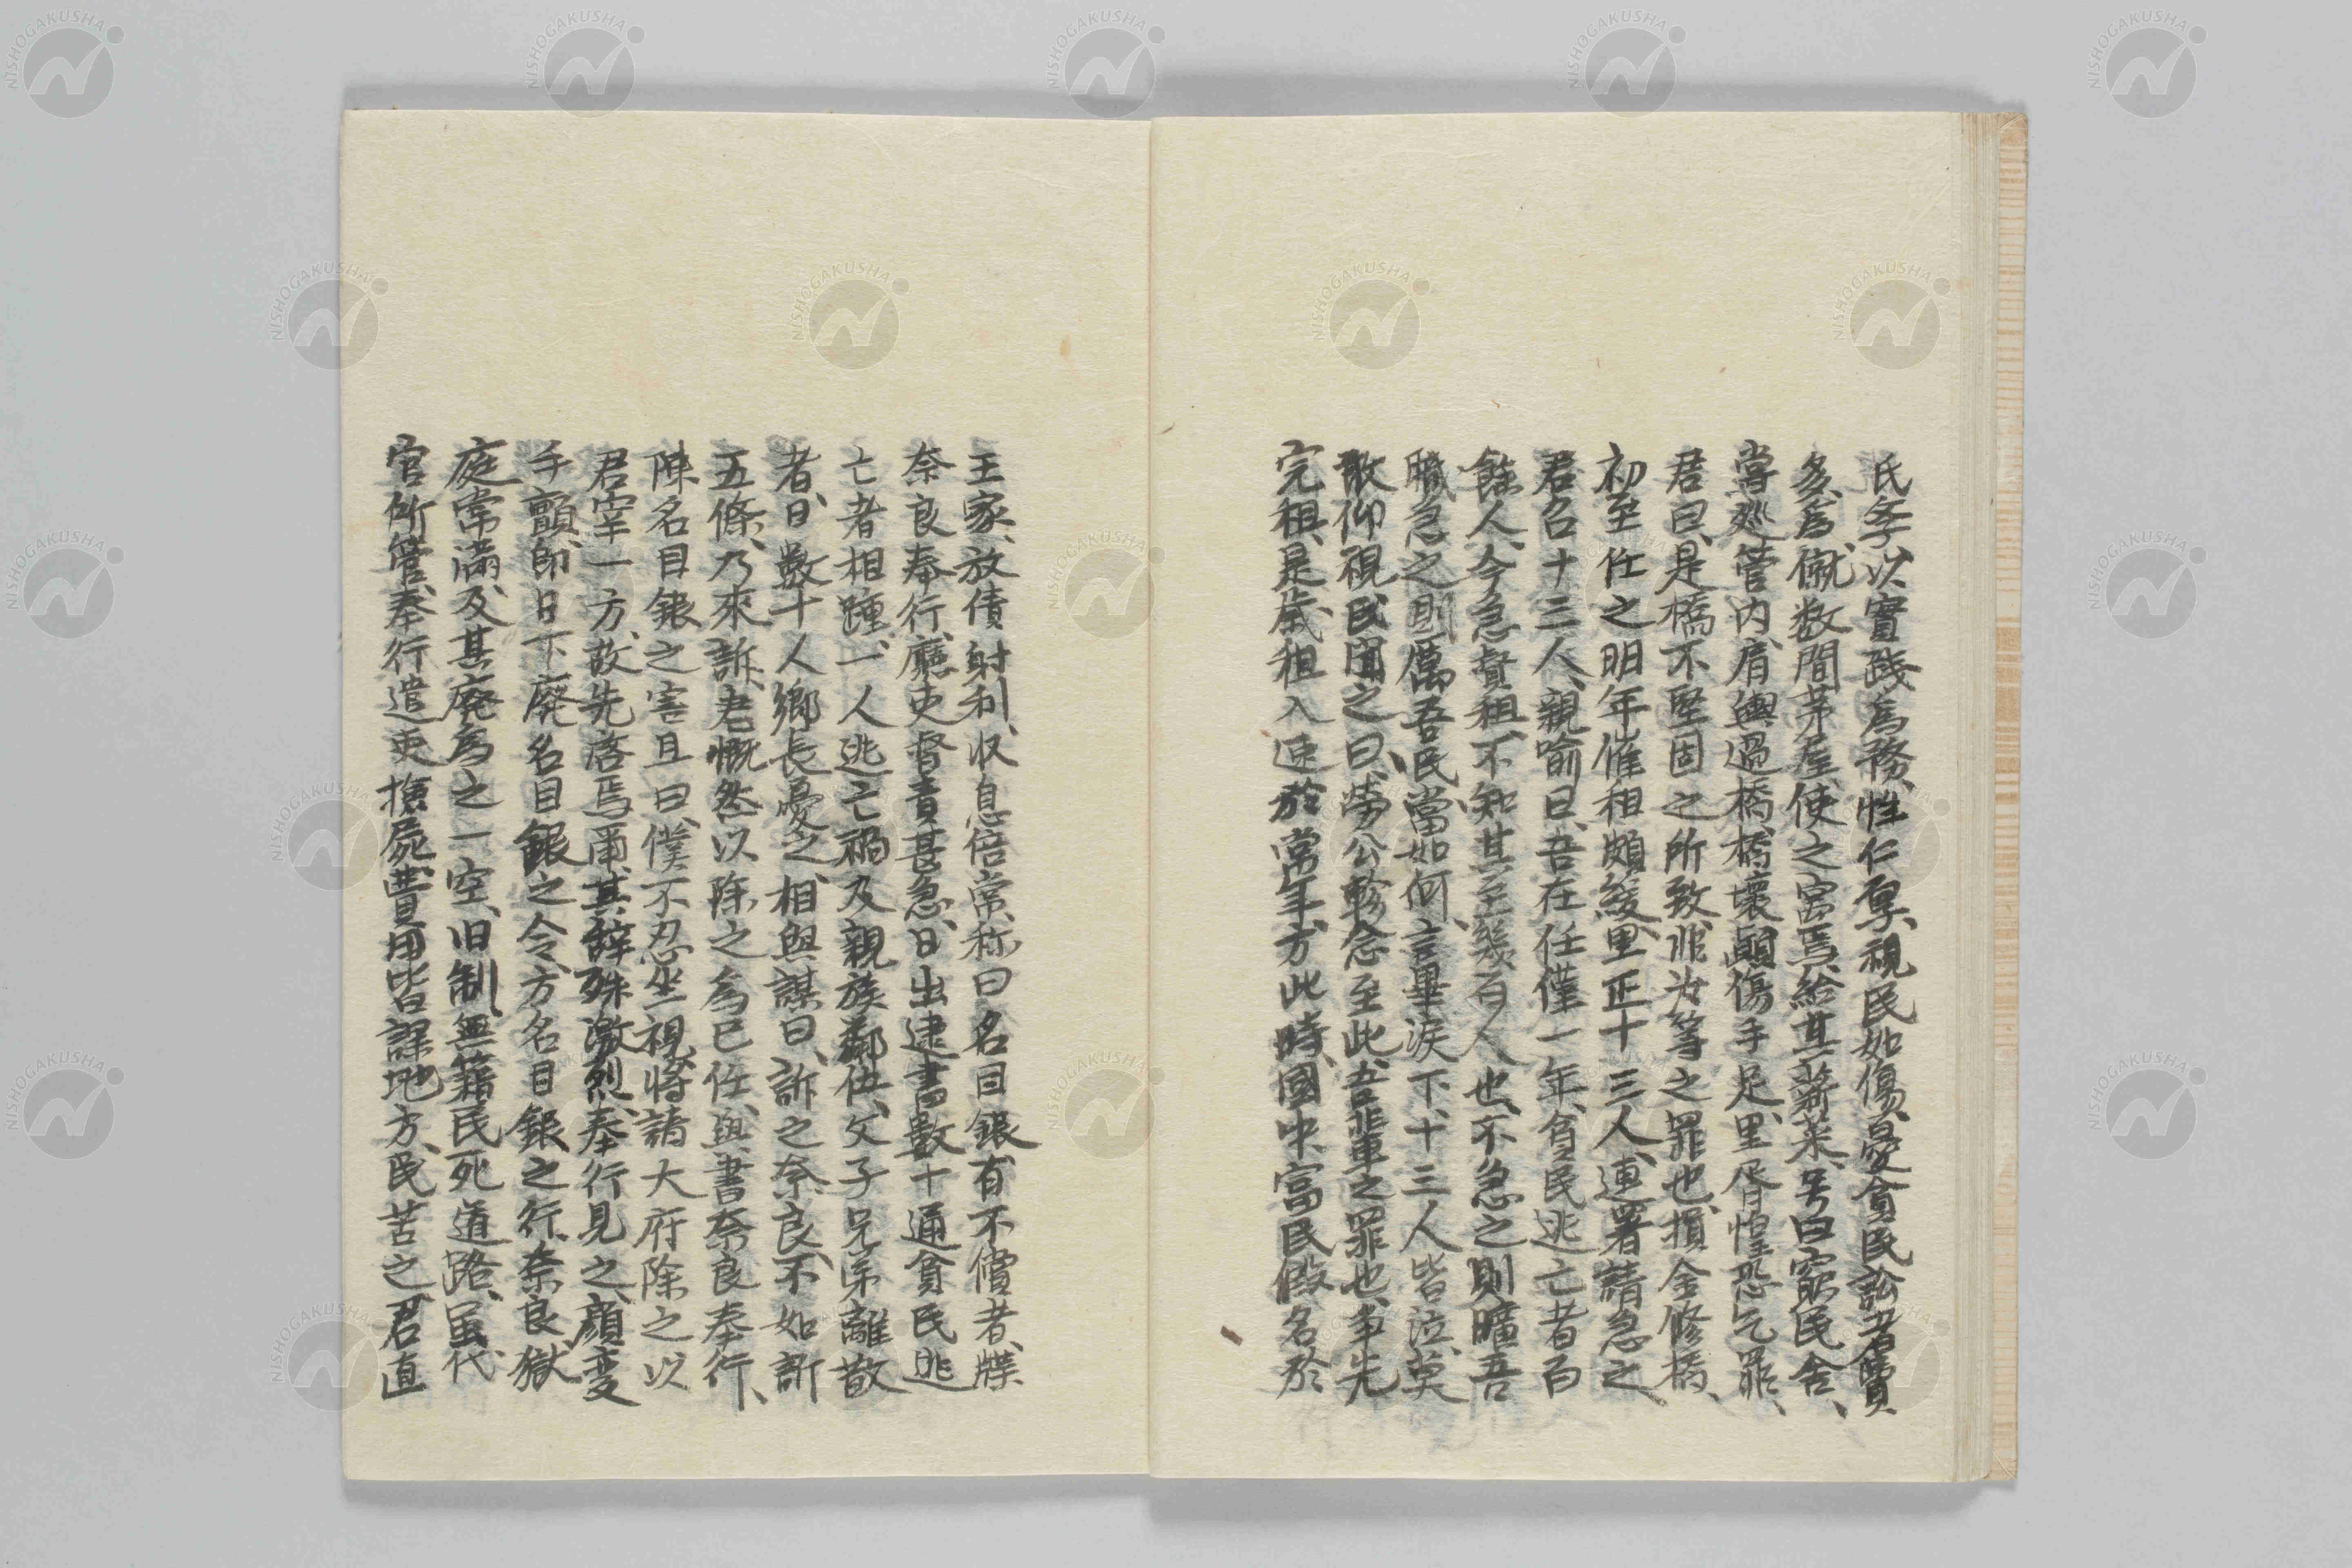 氏季以實踐為務、性仁厚、視民如傷、憂貧民訟者費
多、為僦数間茅屋、使之寓焉、給其薪菜、号曰窮民舍、
嘗巡管内、肩輿過橋、橋壞顚傷手足、里胥惶恐乞罪、
君曰、是橋不堅固之所致、非汝等之罪也、損金修橋、
初至任之明年、催租頗緩、里正十三人、連署請急之、
君召十三人、親喻曰、吾在任僅一年、貧民逃亡者百
餘人、今急責租、不知其至幾百人也、不急之則曠吾
職、急之則厲吾民、當如何、言畢淚下、十三人皆泣、莫
敢仰視、民聞之曰、勞公軫念至此、吾輩之罪也、爭先
完租、是歲租入速於常年、方此時、國中富民假名於
王家、放債射利、収息倍常、称曰名目銀、有不償者、牒
奈良奉行廳、吏督責甚急、日出逮書數十通、貧民逃
亡者相踵、一人逃亡、禍及親族鄰伍、父子兄弟離散
者、日數十人、鄉長憂之、相與謀曰、訴之奈良、不如訴
五條、乃來訴、君慨然以除之為己任、與書奈良奉行、
陳名目銀之害、且曰、僕不忍坐視、將請大府除之、以
君宰一方、故先啓焉爾、其辭殊激烈、奉行見之、顏変
手顫、即日下廢名目銀之令、方名目銀之行、奈良獄
庭常満、及其廢為之一空、旧制、無籍民死道路、虽代
官所管、奉行遣吏撿屍、費用皆課地方、民苦之、君直